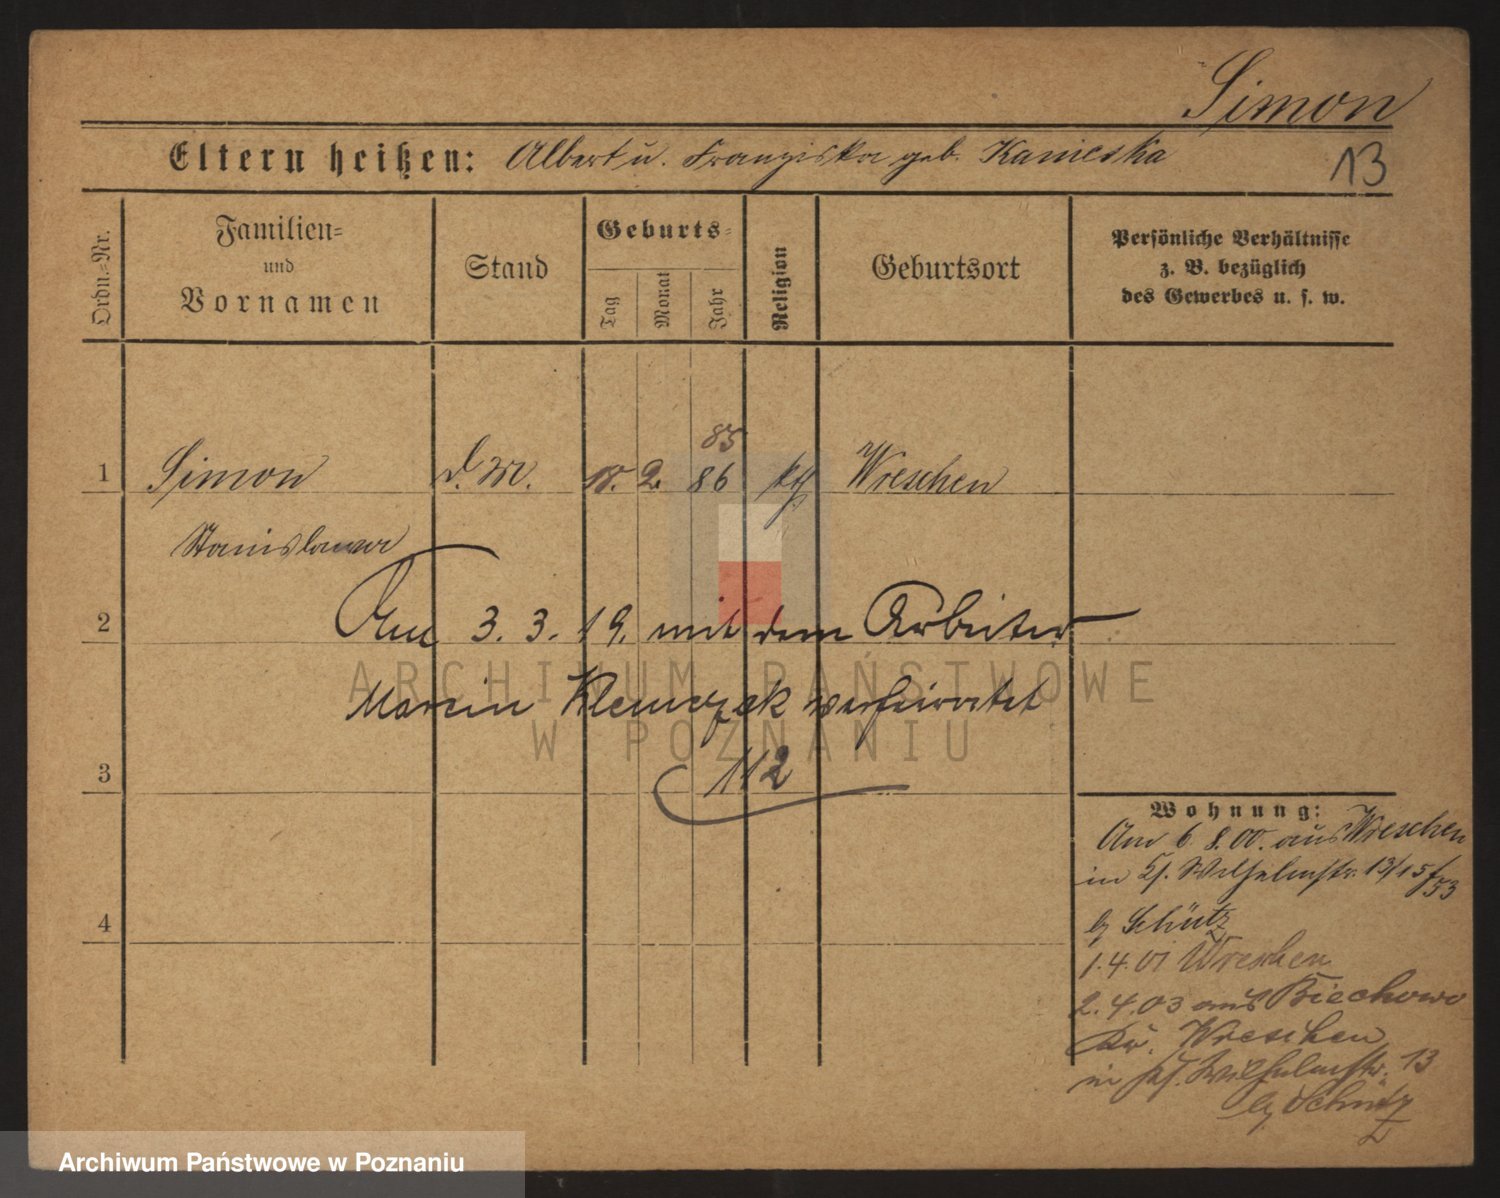 Simon
Eltern heißen: Albert u. Franziska geb. Kanieska
13
Ordn.=Nr.
Familien=
und
Vornamen
Stand
Geburts=
Tag
Monat
Jahr
Religion
Geburtsort
Persönliche Verhältnisse
z. B. bezüglich
des Gewerbes u. s. w.
85
1 Simon d. M. 2. 86 kth Wreschen
Stanislawa
2 Am 3. 3. 19. mit dem Arbeiter
Marcin Klemczak verheiratet
112
3
4
Wohnung:
Am 6. 8. 00. aus Wreschen
in Wilhelmstr. 13/15
b/ Schütz
1.4.01 Wreschen
2.4.03 aus Biechowo
Kr. Wreschen
in Wilhelmstr. 13
b/ Schütz
ARCHIWUM PAŃSTWOWE
W POZNANIU
Archiwum Państwowe w Poznaniu